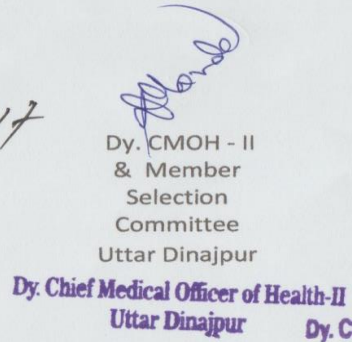 Dy. CMOH - II
& Member
Selection
Committee
Uttar Dinajpur
Dy. Chief Medical Officer of Health-II
Uttar Dinajpur
Dy. C